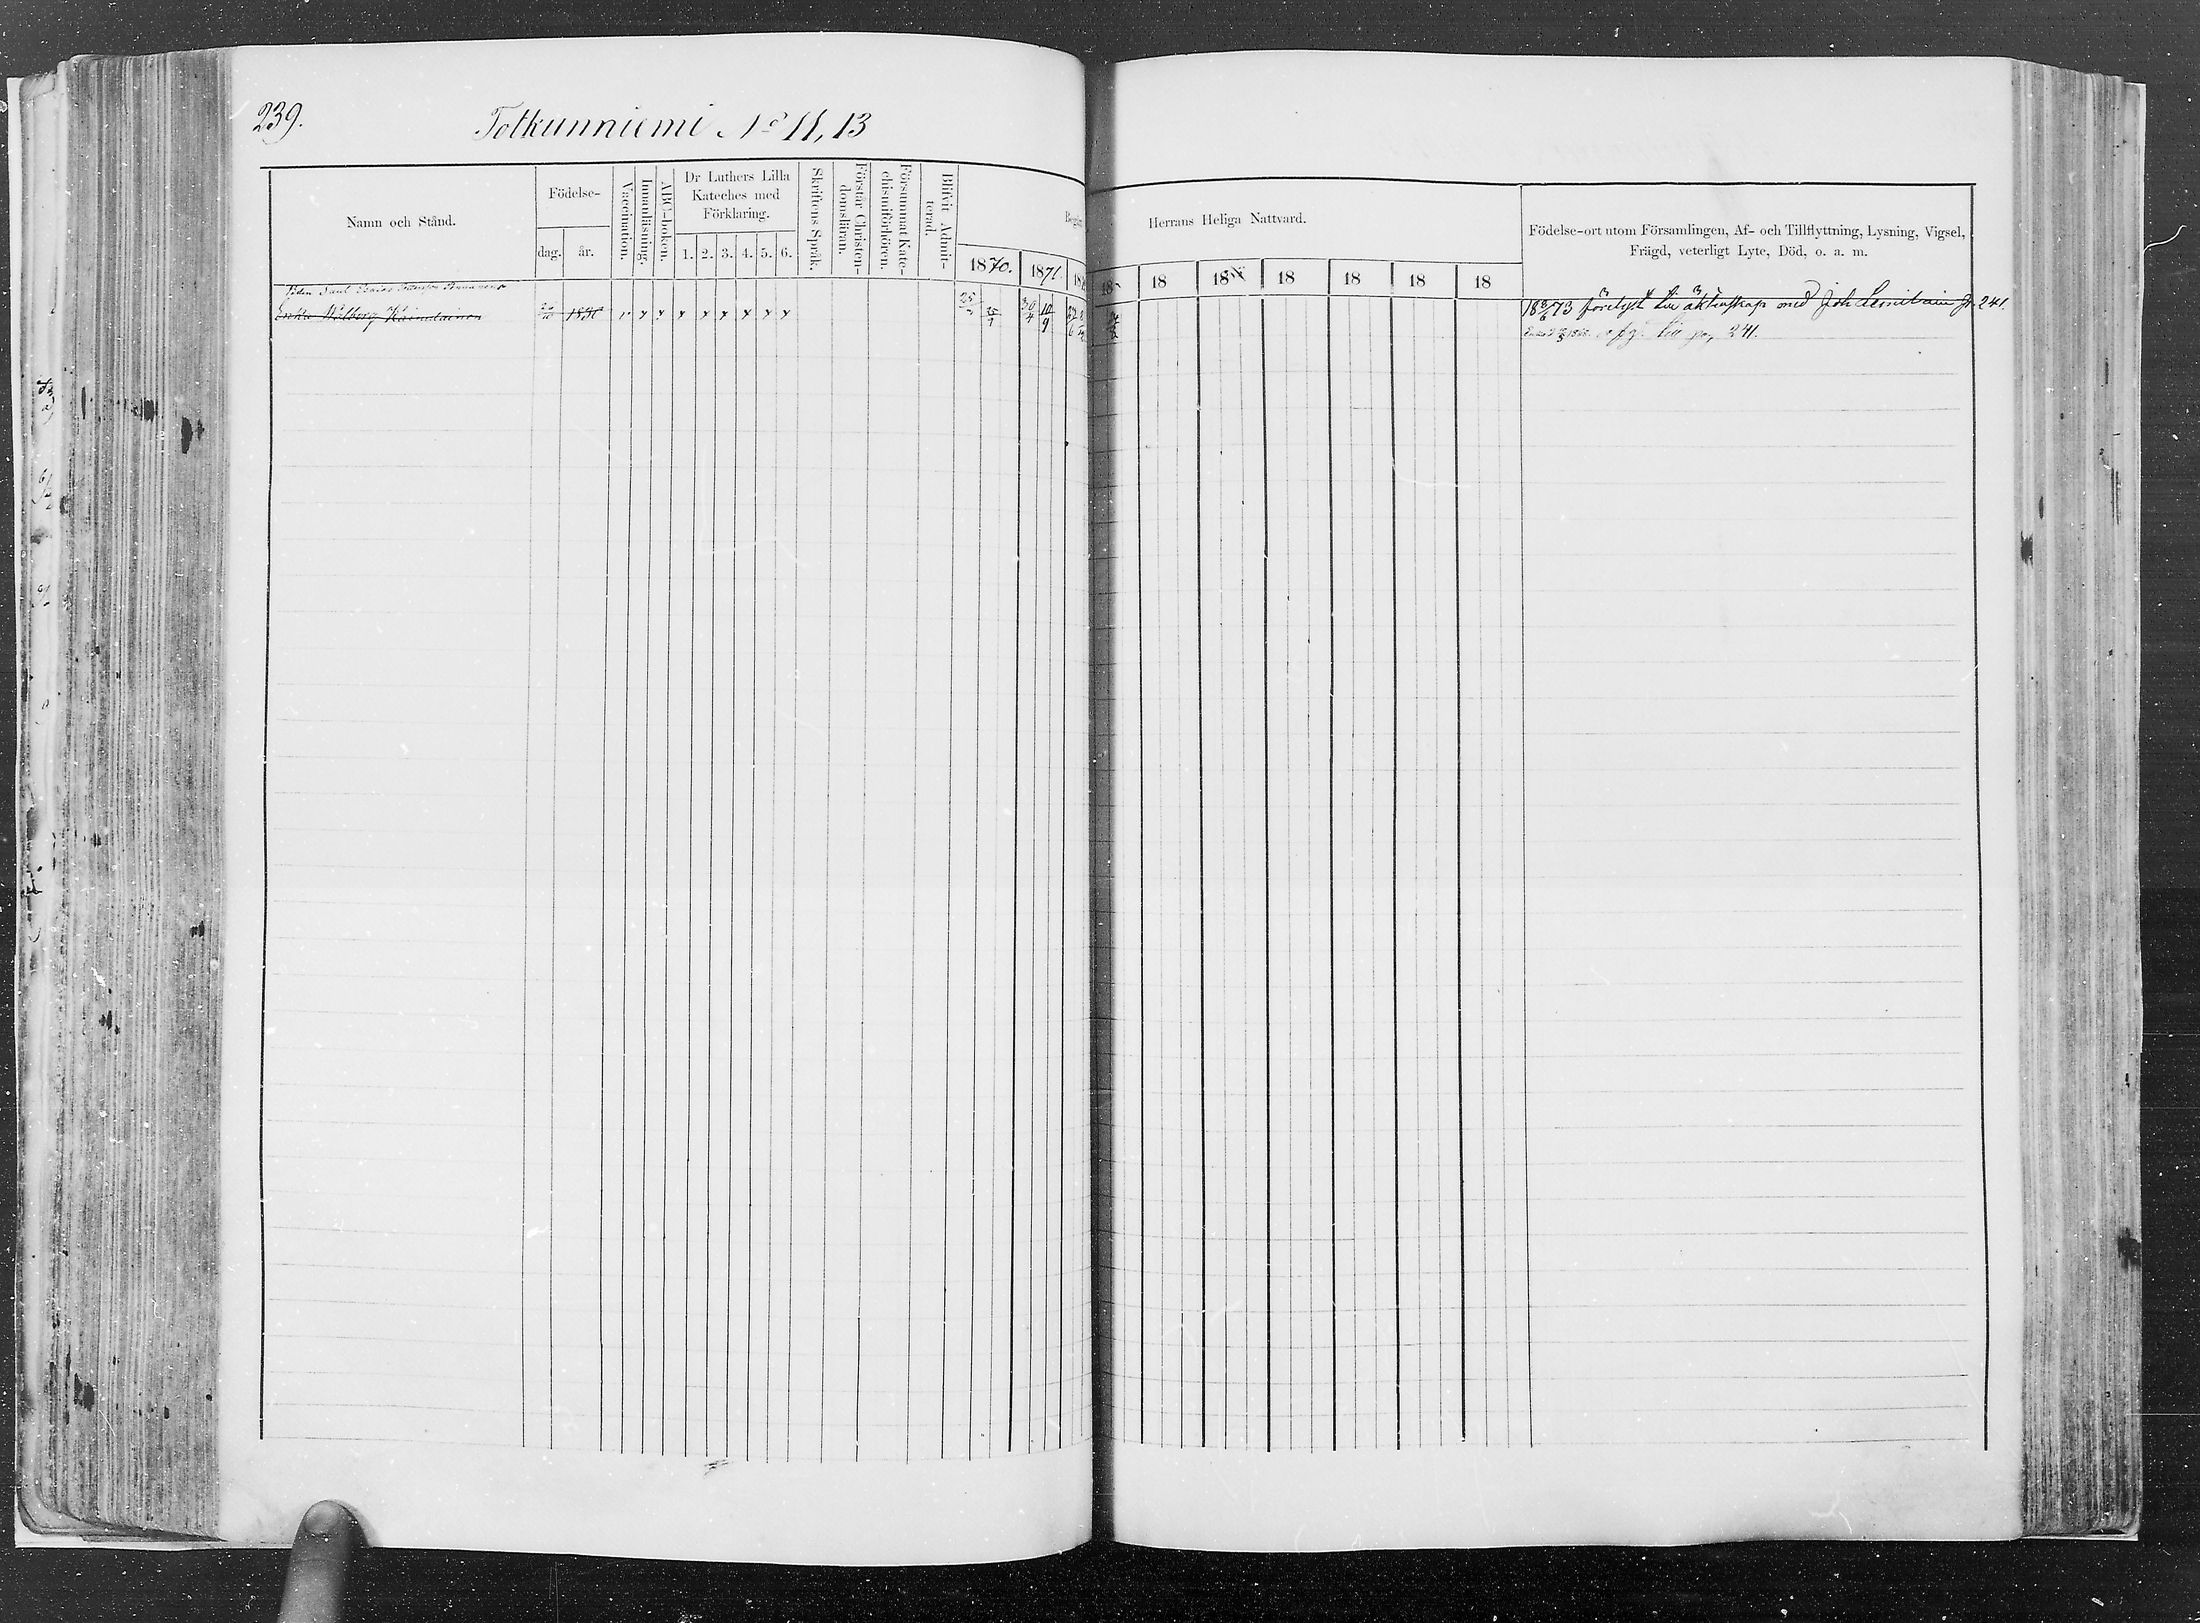 239.
Totkunniemi No 11, 13
Namn och Stånd.
Födelse-
dag.
år.
Vaccination.
Innanläsning.
ABC-boken.
Dr Luthers Lilla
Kateches med
Förklaring.
1. 2. 3. 4. 5. 6.
Skriftens Språk.
Förstår Christen-
domsläran.
Försummat Kate-
chismiförhören.
Blifvit Admit-
terad.
Herrans Heliga Nattvard.
1870. 1871. 18
18 18 18 18 18 18
Födelse-ort utom Församlingen, Af- och Tillflyttning, Lysning, Vigsel,
Frägd, veterligt Lyte, Död, o. a. m.
Enkan Walborg Kainulainen
1830 v x x x x x x x x
25 30/4 10/9
18 8/6 73 förelyst till äktenskap med Joh. p. 241.
till pag. 241.